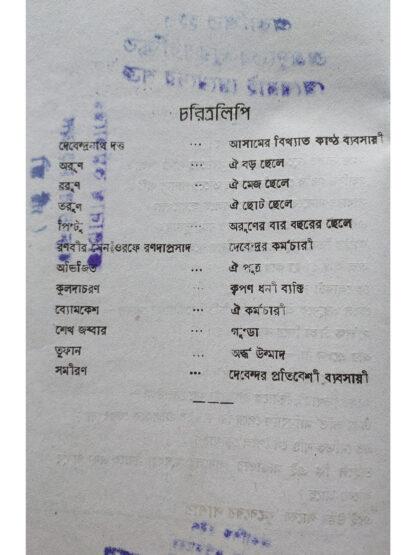 চরিত্রলিপি
দেবেন্দ্রনাথ দত্ত ... আসামের বিখ্যাত কাষ্ঠ ব্যবসায়ী
অরুণ ... ঐ বড় ছেলে
বরুণ ... ঐ মেজ ছেলে
তরুণ ... ঐ ছোট ছেলে
পিন্টু ... অরুণের বার বছরের ছেলে
রণবীর সেন ওরফে রণদাপ্রসাদ দেবেন্দ্রর কর্মচারী
অভিজিত ... ঐ পুত্র
কুলদাচরণ ... কৃপণ ধনী ব্যক্তি
ব্যোমকেশ ... ঐ কর্মচারী
শেখ জব্বার ... গুণ্ডা
তুফান ... অর্দ্ধ উন্মাদ
সমীরণ ... দেবেন্দর প্রতিবেশী ব্যবসায়ী